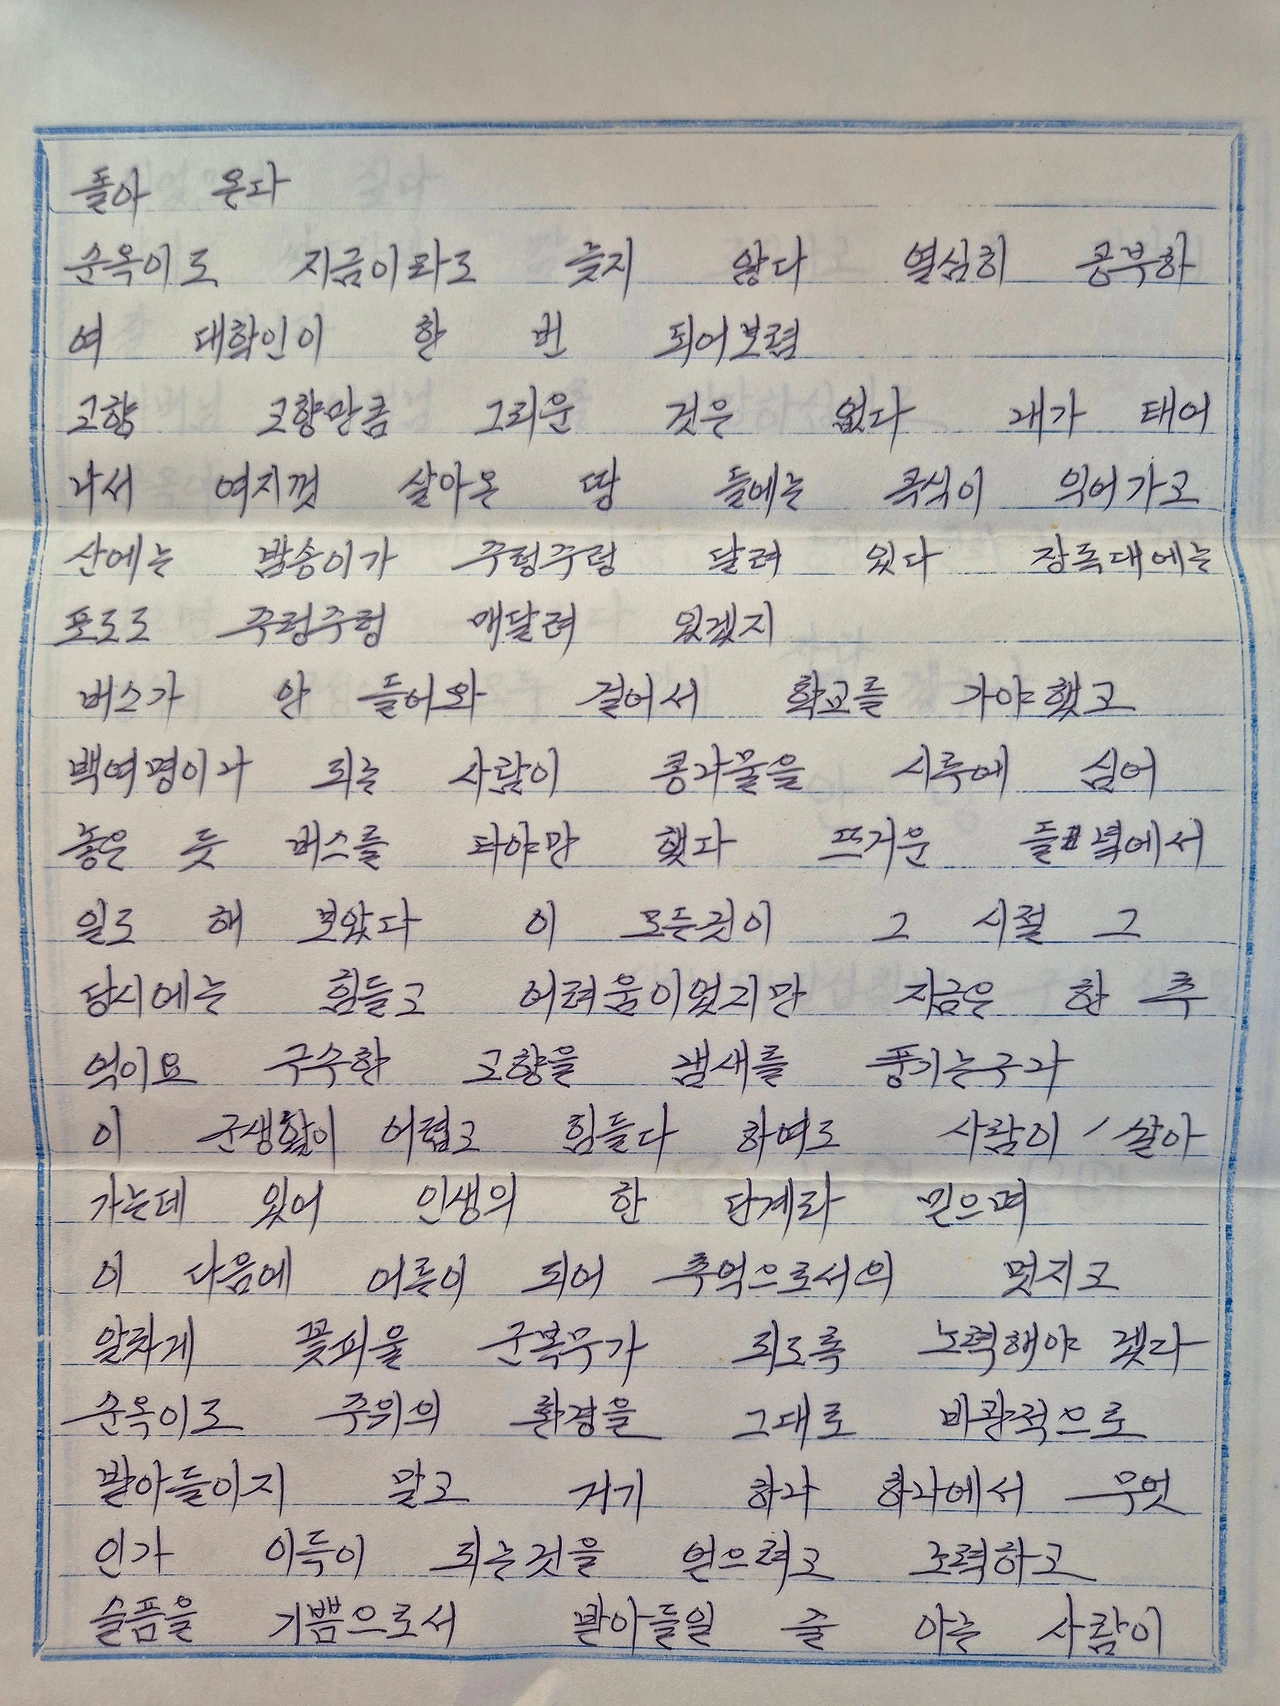 돌아 온다
순옥이도 지금이라도 늦지 않다 열심히 공부하
여 대학인이 한 번 되어보렴
고향 고향만큼 그리운 것은 없다 내가 태어
나서 여지껏 살아온 땅 들에는 곡식이 익어가고
산에는 밤송이가 주렁주렁 달려 있다 장독대에는
포도도 주렁주렁 매달려 있겠지
버스가 안 들어와 걸어서 학교를 가야했고
백여명이나 되는 사람이 콩나물을 시루에 심어
놓은 듯 버스를 타야만 했다 뜨거운 들녘에서
일도 해 보았다 이 모든것이 그 시절 그
당시에는 힘들고 어려움이었지만 지금은 한 추
억이요 구수한 고향을 냄새를 풍기는구나
이 군생활이 어렵고 힘들다 하여도 사람이 살아
가는데 있어 인생의 한 단계라 믿으며
이 다음에 어른이 되어 추억으로서의 멋지고
알차게 꽃피울 군복무가 되도록 노력해야 겠다
순옥이도 주위의 환경을 그대로 비관적으로
받아들이지 말고 거기 하나 하나에서 무엇
인가 이득이 되는것을 얻으려고 노력하고
슬픔을 기쁨으로서 받아들일 줄 아는 사람이